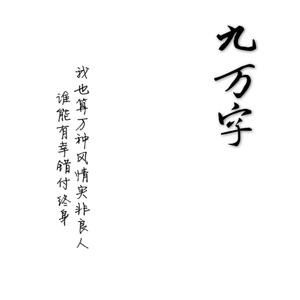 九万字
我也算万种风情实非良人
谁能有幸错付终身